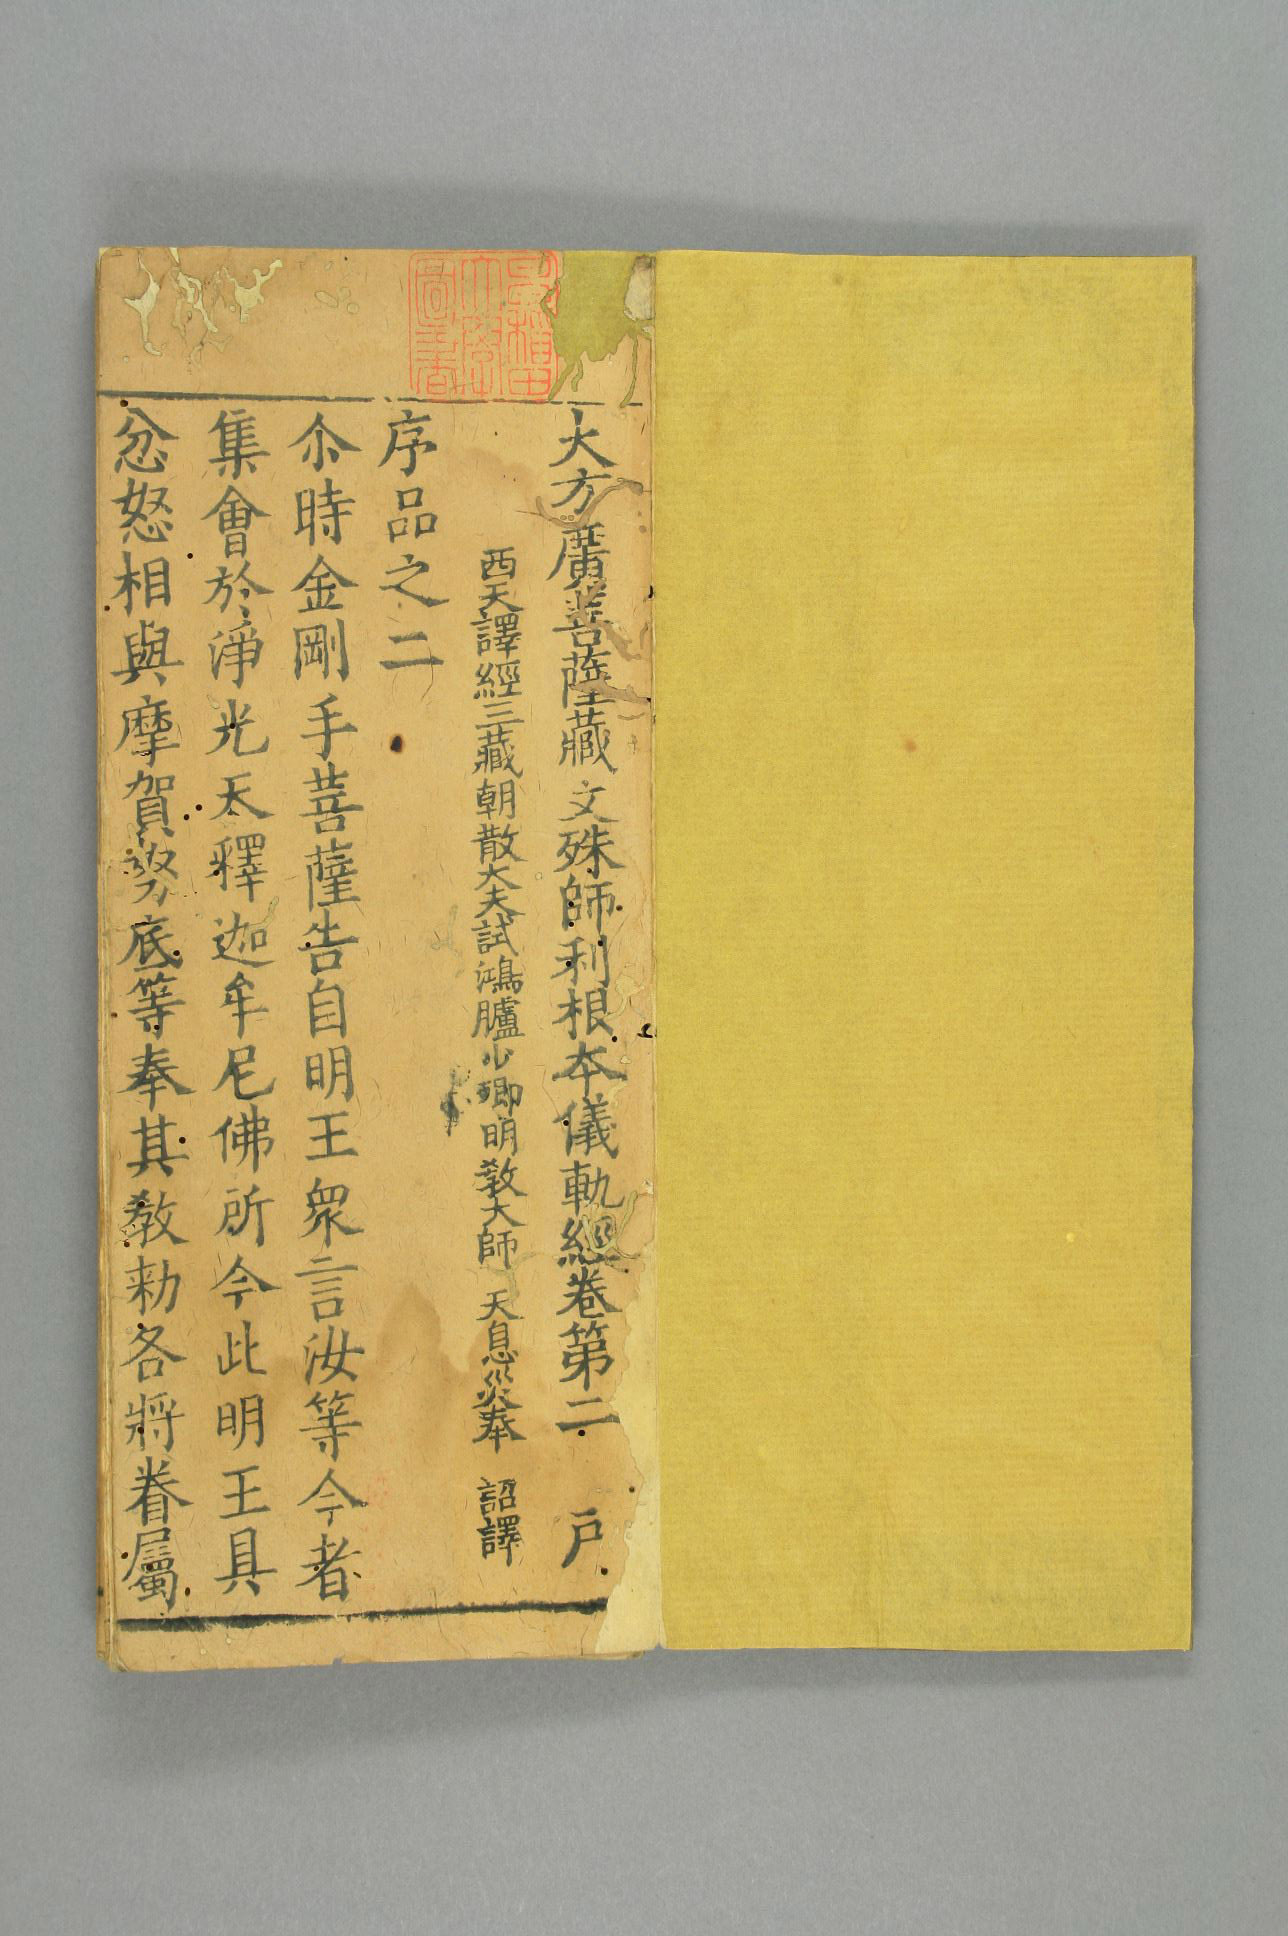 大方廣菩薩藏文殊師利根本儀軌經卷第二　戶
西天譯經三藏朝散大夫試鴻臚少卿明教大師　天息災奉　詔譯
序品之二
尒時金剛手菩薩告自明王眾言汝等今者
集會於淨光天釋迦牟尼佛所今此明王具
忿怒相與摩賀㔟底等奉其教勑各將眷屬
早稲田
大學
圖書